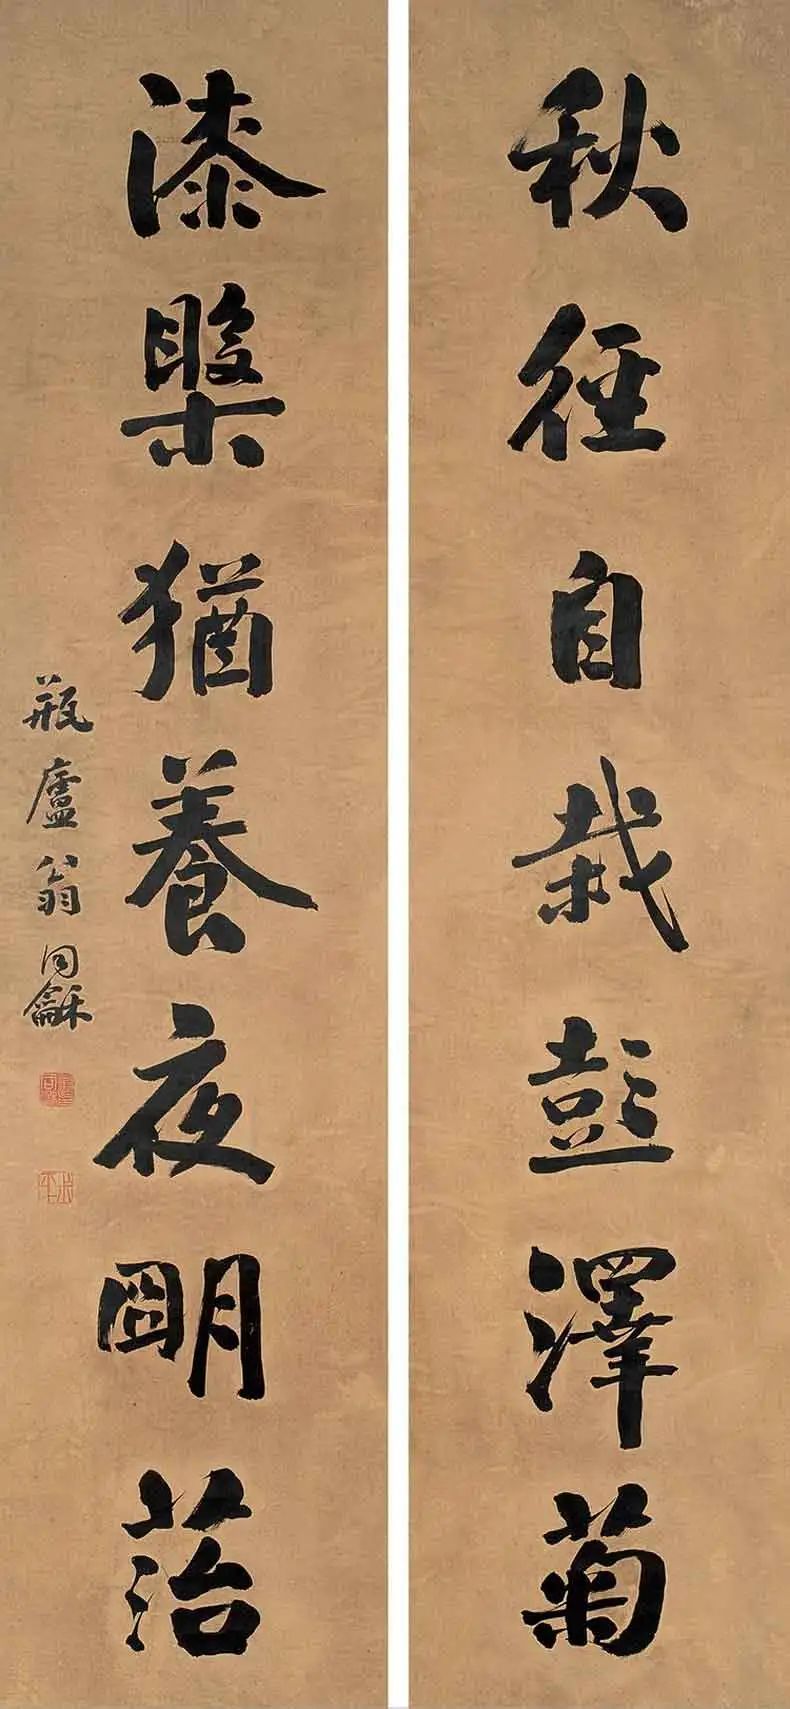 秋徑自栽彭澤菊
漆槃猶養夜朙菭
瓶廬翁同龢
叔平